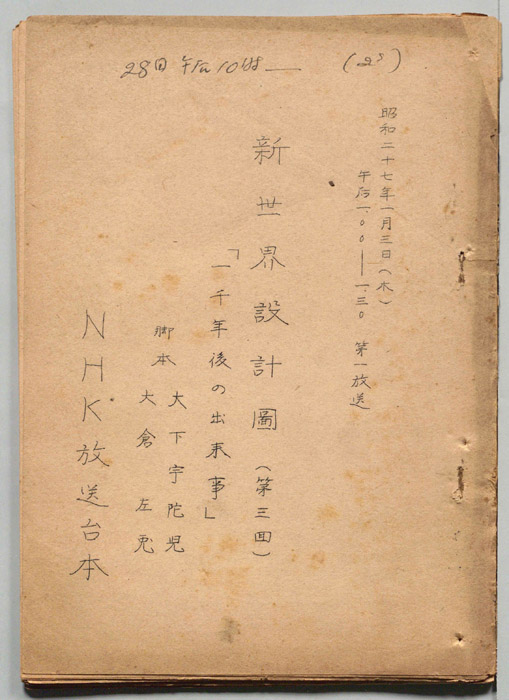 28日 午后10時
(28)
昭和二十七年一月三日(木)
午后一.〇〇—一.三〇 第一放送
新世界設計圖(第三回)
「一千年後の出来事」
脚本 大下宇陀児
大倉左兎
NHK放送台本